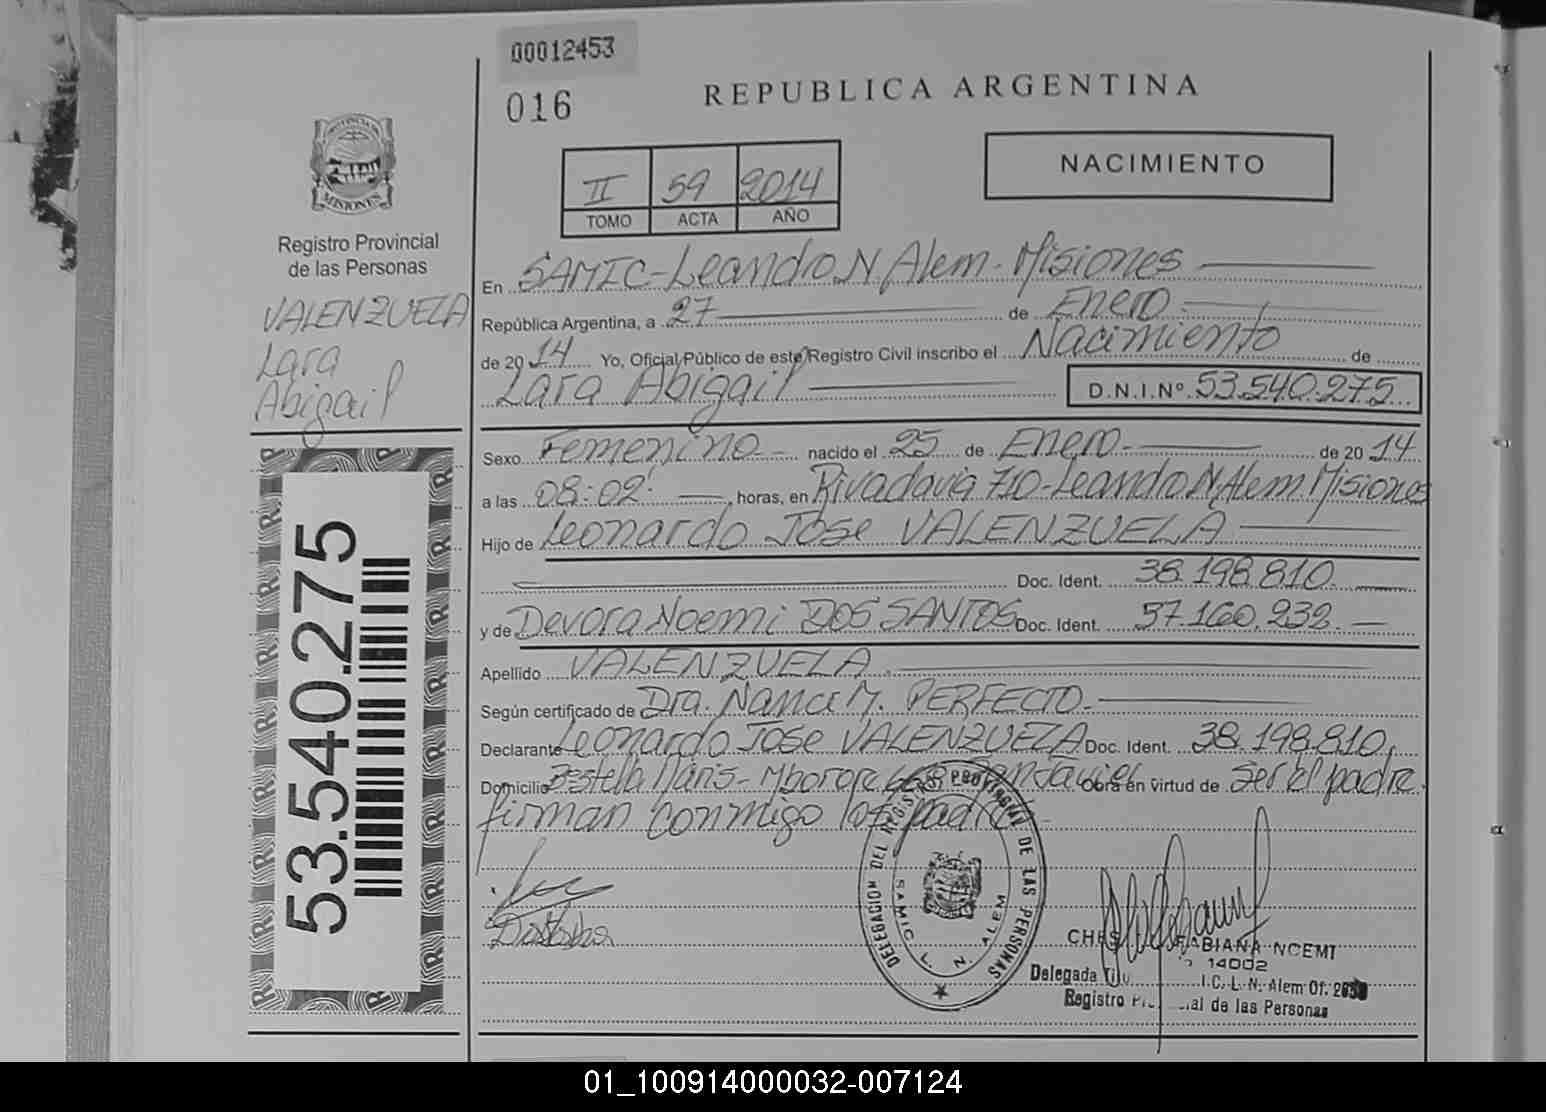 00012453
016
REPUBLICA ARGENTINA
NACIMIENTO
II 59 2014
TOMO ACTA AÑO
PROVINCIA DE
MISIONES
Registro Provincial
de las Personas
VALENZUELA
Lara
Abigail
En SAMIC-Leandro N Alem-Misiones
República Argentina, a 27 de Enero
de 2014 Yo, Oficial Público de este Registro Civil inscribo el Nacimiento de
Lara Abigail D.N.I.Nº 53.540.275
Sexo Femenino nacido el 25 de Enero de 2014
a las 08:02 horas, en Rivadavia 710-Leandro N, Alem. Misiones
Hijo de Leonardo José VALENZUELA
Doc. Ident. 38.198.810
y de Devora Noemi DOS SANTOS Doc. Ident. 37.160.232
Apellido VALENZUELA
Según certificado de Dra. Nanci M. PERFECTO
Declarante Leonardo José VALENZUELA Doc. Ident. 38.198.810
Domicilio Bº Estella Maris- Mborore Obra en virtud de ser el padre.
firman conmigo los padres
53.540.275
DELEGACION DEL REGISTRO PROVINCIAL DE LAS PERSONAS
SAMIC L. N. ALEM
FABIANA NOEMI
14002
Delegada I.C. L. N. Alem Of.
Registro de las Personas
01_100914000032-007124